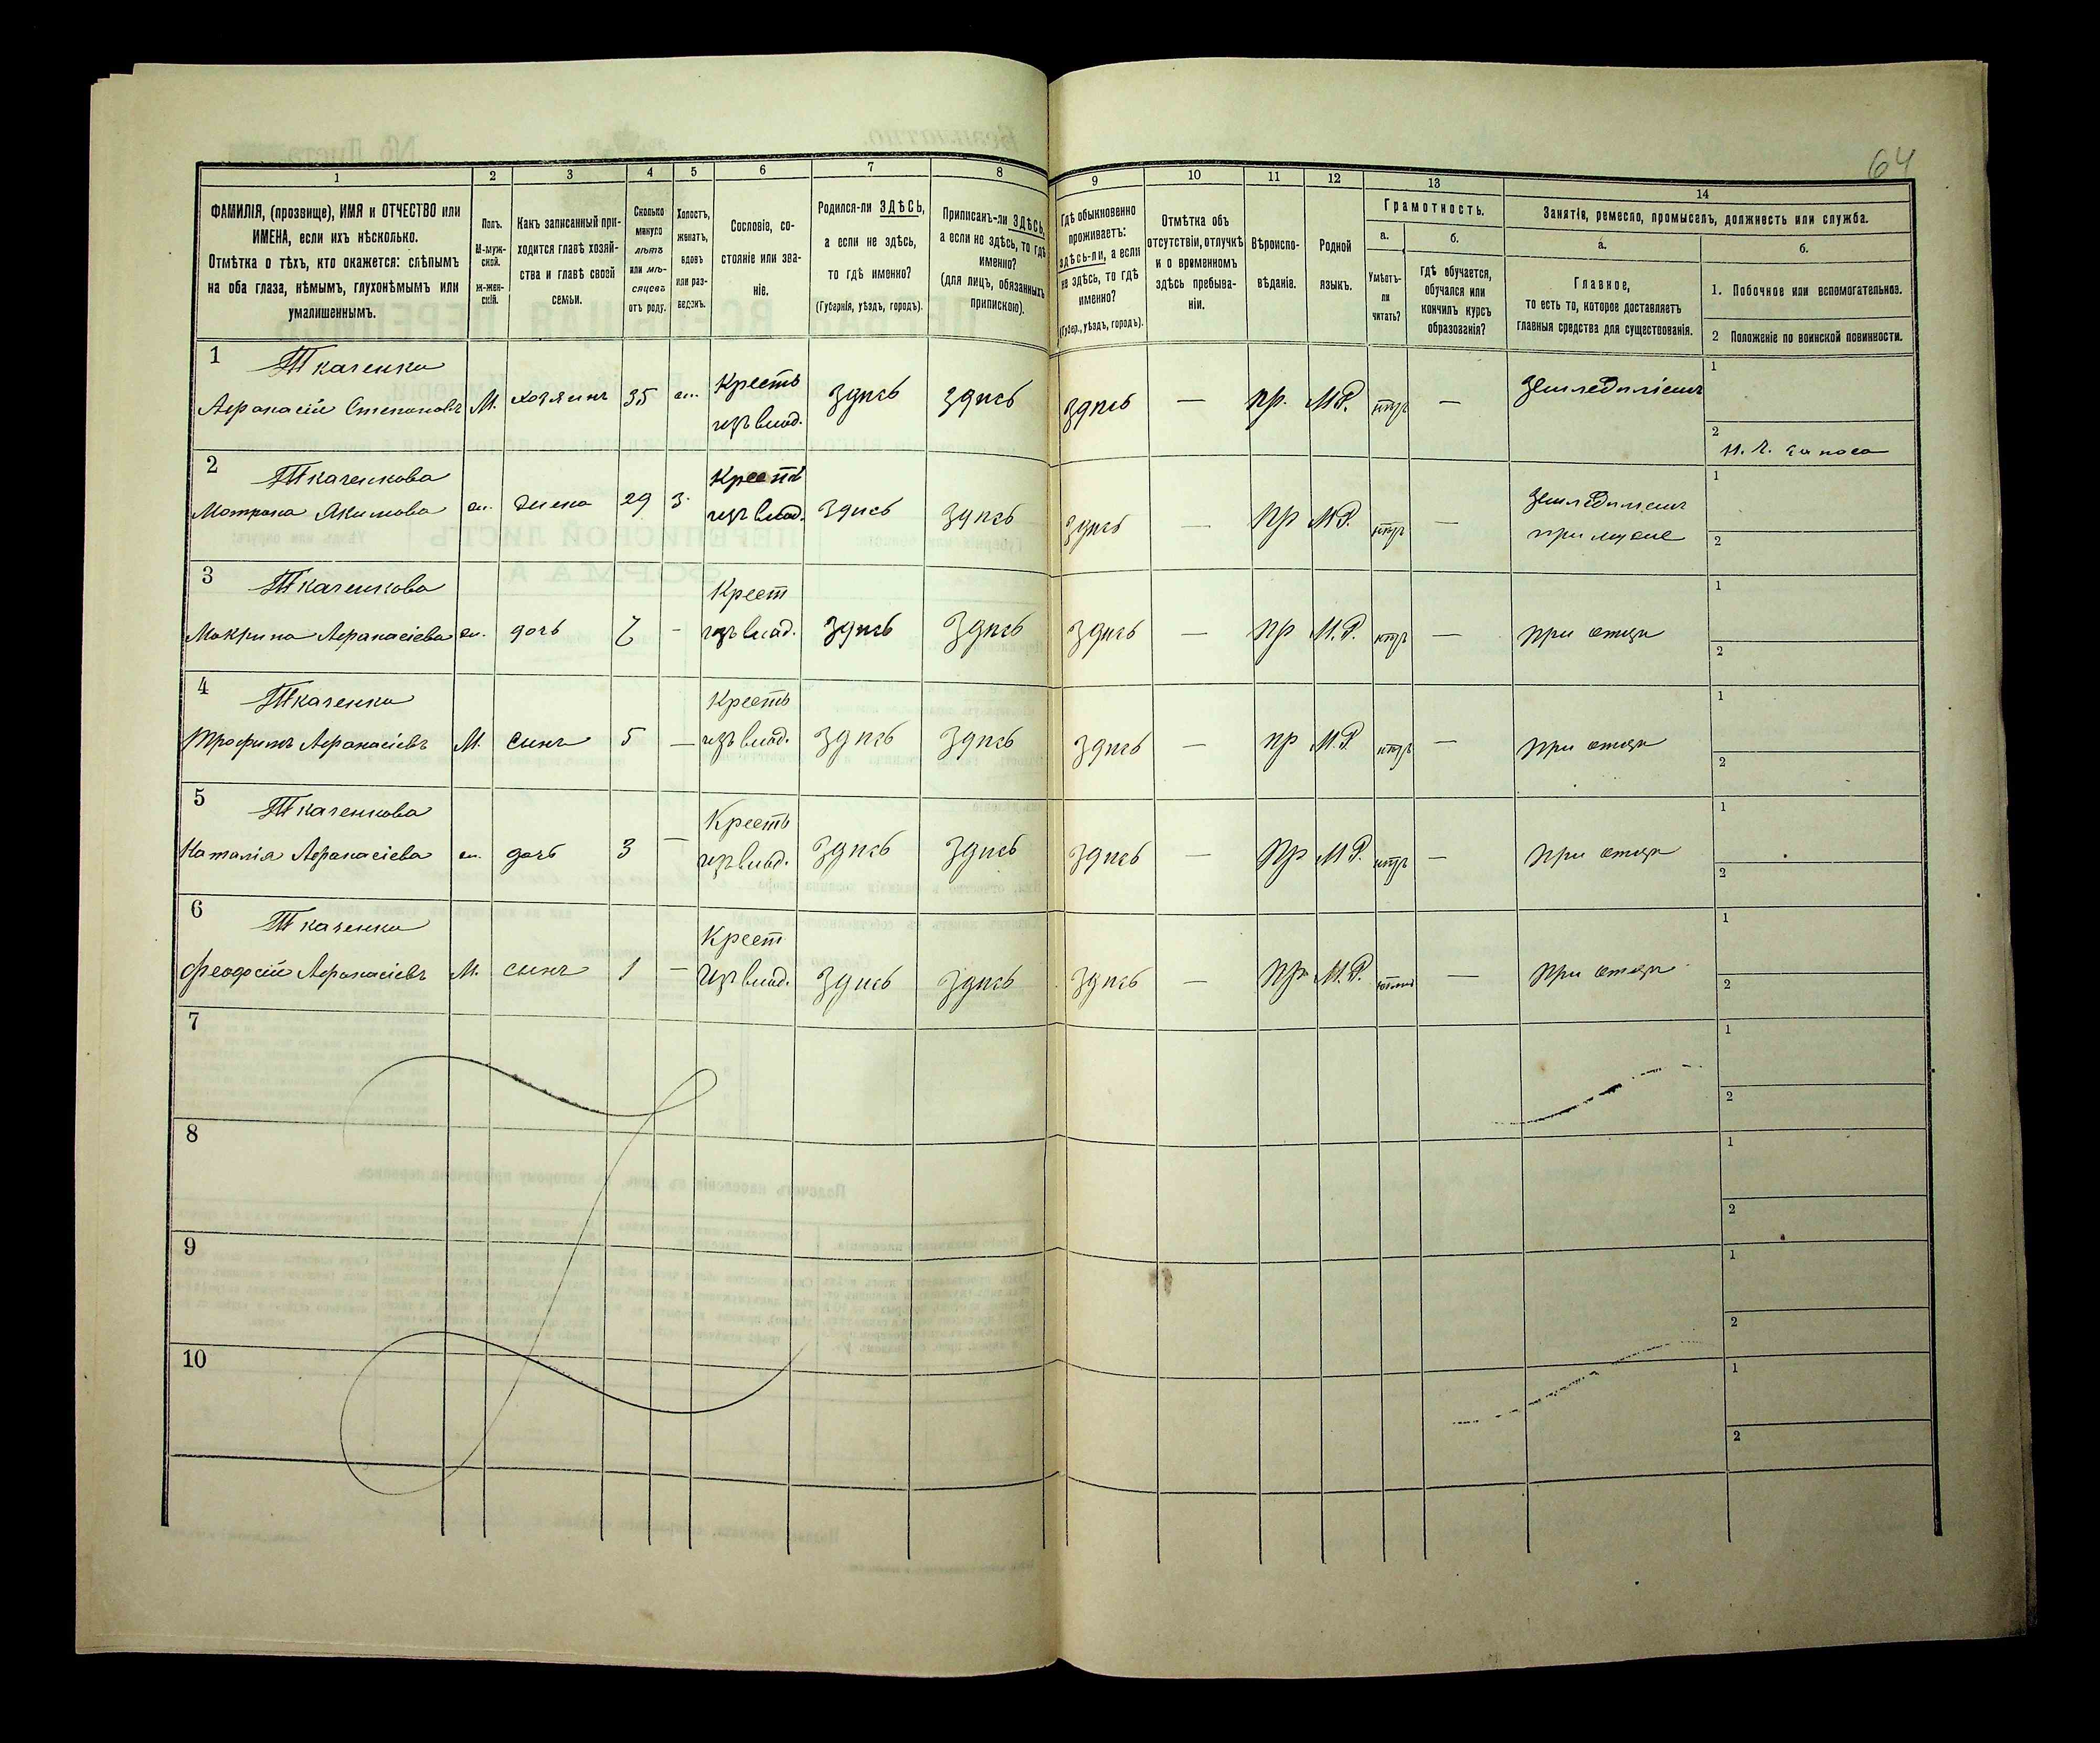 64
1 2 3 4 5 6 7 8 9 10 11 12 13 14
ФАМИЛІЯ, (прозвище), ИМЯ и ОТЧЕСТВО или
ИМЕНА, если ихъ нѣсколько.
Отмѣтка о тѣхъ, кто окажется: слѣпымъ
на оба глаза, нѣмымъ, глухонѣмымъ или
умалишеннымъ.
Полъ.
М-муж-
ской.
Ж-жен-
скій.
Какъ записанный при-
ходится главѣ хозяй-
ства и главѣ своей
семьи.
Сколько
минуло
лѣтъ
или мѣ-
сяцевъ
отъ роду.
Холостъ,
женатъ,
вдовъ
или раз-
веденъ.
Сословіе, со-
стояніе или зва-
ніе.
Родился-ли ЗДѢСЬ,
а если не здѣсь,
то гдѣ именно?
(Губернія, уѣздъ, городъ).
Приписанъ-ли ЗДѢСЬ,
а если не здѣсь, то гдѣ
именно?
(для лицъ, обязанныхъ
припискою).
Гдѣ обыкновенно
проживаетъ:
здѣсь-ли, а если
не здѣсь, то гдѣ
именно?
(Губер., уѣздъ, городъ).
Отмѣтка объ
отсутствіи, отлучкѣ
и о временномъ
здѣсь пребыва-
ніи.
Вѣроиспо-
вѣданіе.
Родной
языкъ.
Грамотность.
а.
Умѣетъ-
ли
читать?
б.
гдѣ обучается,
обучался или
кончилъ курсъ
образованія?
Занятіе, ремесло, промыселъ, должность или служба.
а.
Главное,
то есть то, которое доставляетъ
главныя средства для существованія.
б.
1. Побочное или вспомогательное.
2 Положеніе по воинской повинности.
1 Ткаченко Крестъ Земледѣліемъ 1
Афанасій Степановъ М. хозяинъ 35 ж. изъ влад. здѣсь здѣсь здѣсь — пр. М.Р. нѣтъ —
2
2 Ткаченкова Крестъ Земледѣліемъ 1
Мотрона Якимова ж. жена 29 з. изъ влад. здѣсь здѣсь здѣсь — пр М.Р. нѣтъ — при мужѣ 2
3 Ткаченкова Крест 1
Макрина Афанасіева ж. дочь 7 — изъ влад. здѣсь здѣсь здѣсь — пр М.Р. нѣтъ — при отцѣ 2
4 Ткаченко Крестъ 1
Трофимъ Афанасіевъ М. сынъ 5 — изъ влад. здѣсь здѣсь здѣсь — пр М.Р. нѣтъ — при отцѣ 2
5 Ткаченкова Крестъ 1
Наталія Афанасіева ж. дочь 3 — изъ влад. здѣсь здѣсь здѣсь — пр М.Р. нѣтъ — при отцѣ 2
6 Ткаченко Крест 1
Феодосій Афанасіевъ М. сынъ 1 — изъ влад. здѣсь здѣсь здѣсь — пр М.Р. — при отцѣ 2
7 1
2
8 1
2
9 1
2
10 1
2